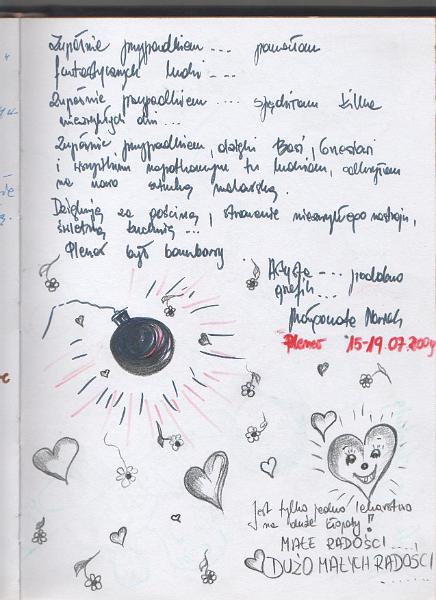 Zupełnie przypadkiem ... poznałam
fantastycznych ludzi ...
Zupełnie przypadkiem .... spędziłam kilka
niezwykłych dni ...
Zupełnie przypadkiem, dzięki Basi,
i wszystkim napotkanym tu ludziom, odkryłam
na nowo sztukę malarską.
Dziękuję za gościnę, stworzenie niezwykłego nastroju,
świetną kuchnię ...
Plener był bombowy
Artysta ... podobno
grafik ...
Małgorzata
Plener 15-19.07.2009
Jest tylko jedno lekarstwo
na duże kłopoty!
MAŁE RADOŚCI ....,
DUŻO MAŁYCH RADOŚCI